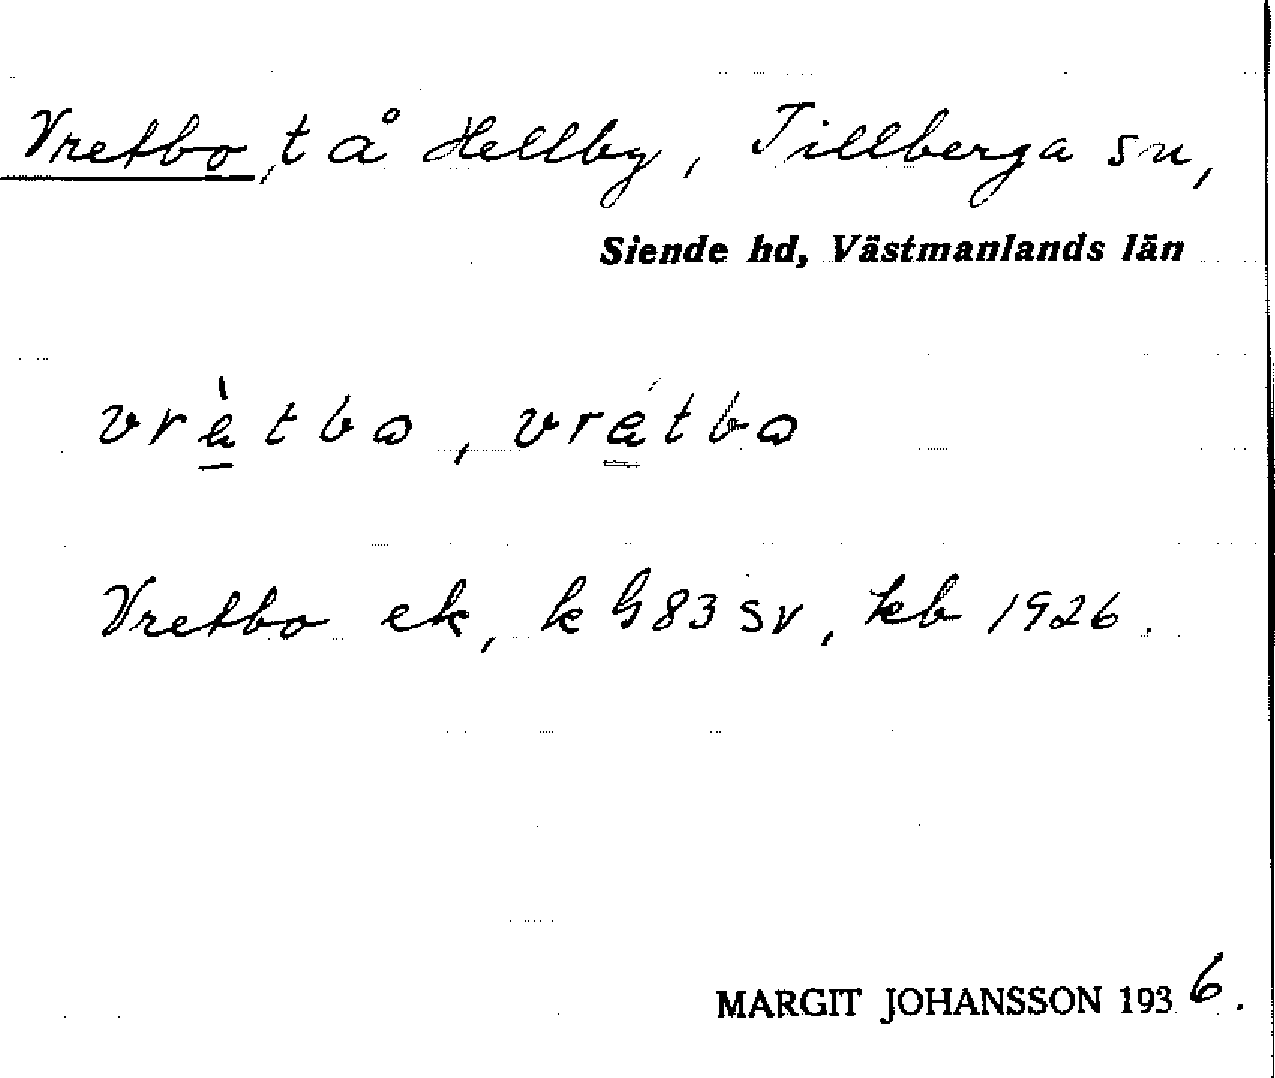 Vretbo, t å Hellby, Tillberga sn,
Siende hd, Västmanlands län
vrètbo, vrétbo
Vretbo ek, k G 83 sv, kb 1926.
MARGIT JOHANSSON 1936.